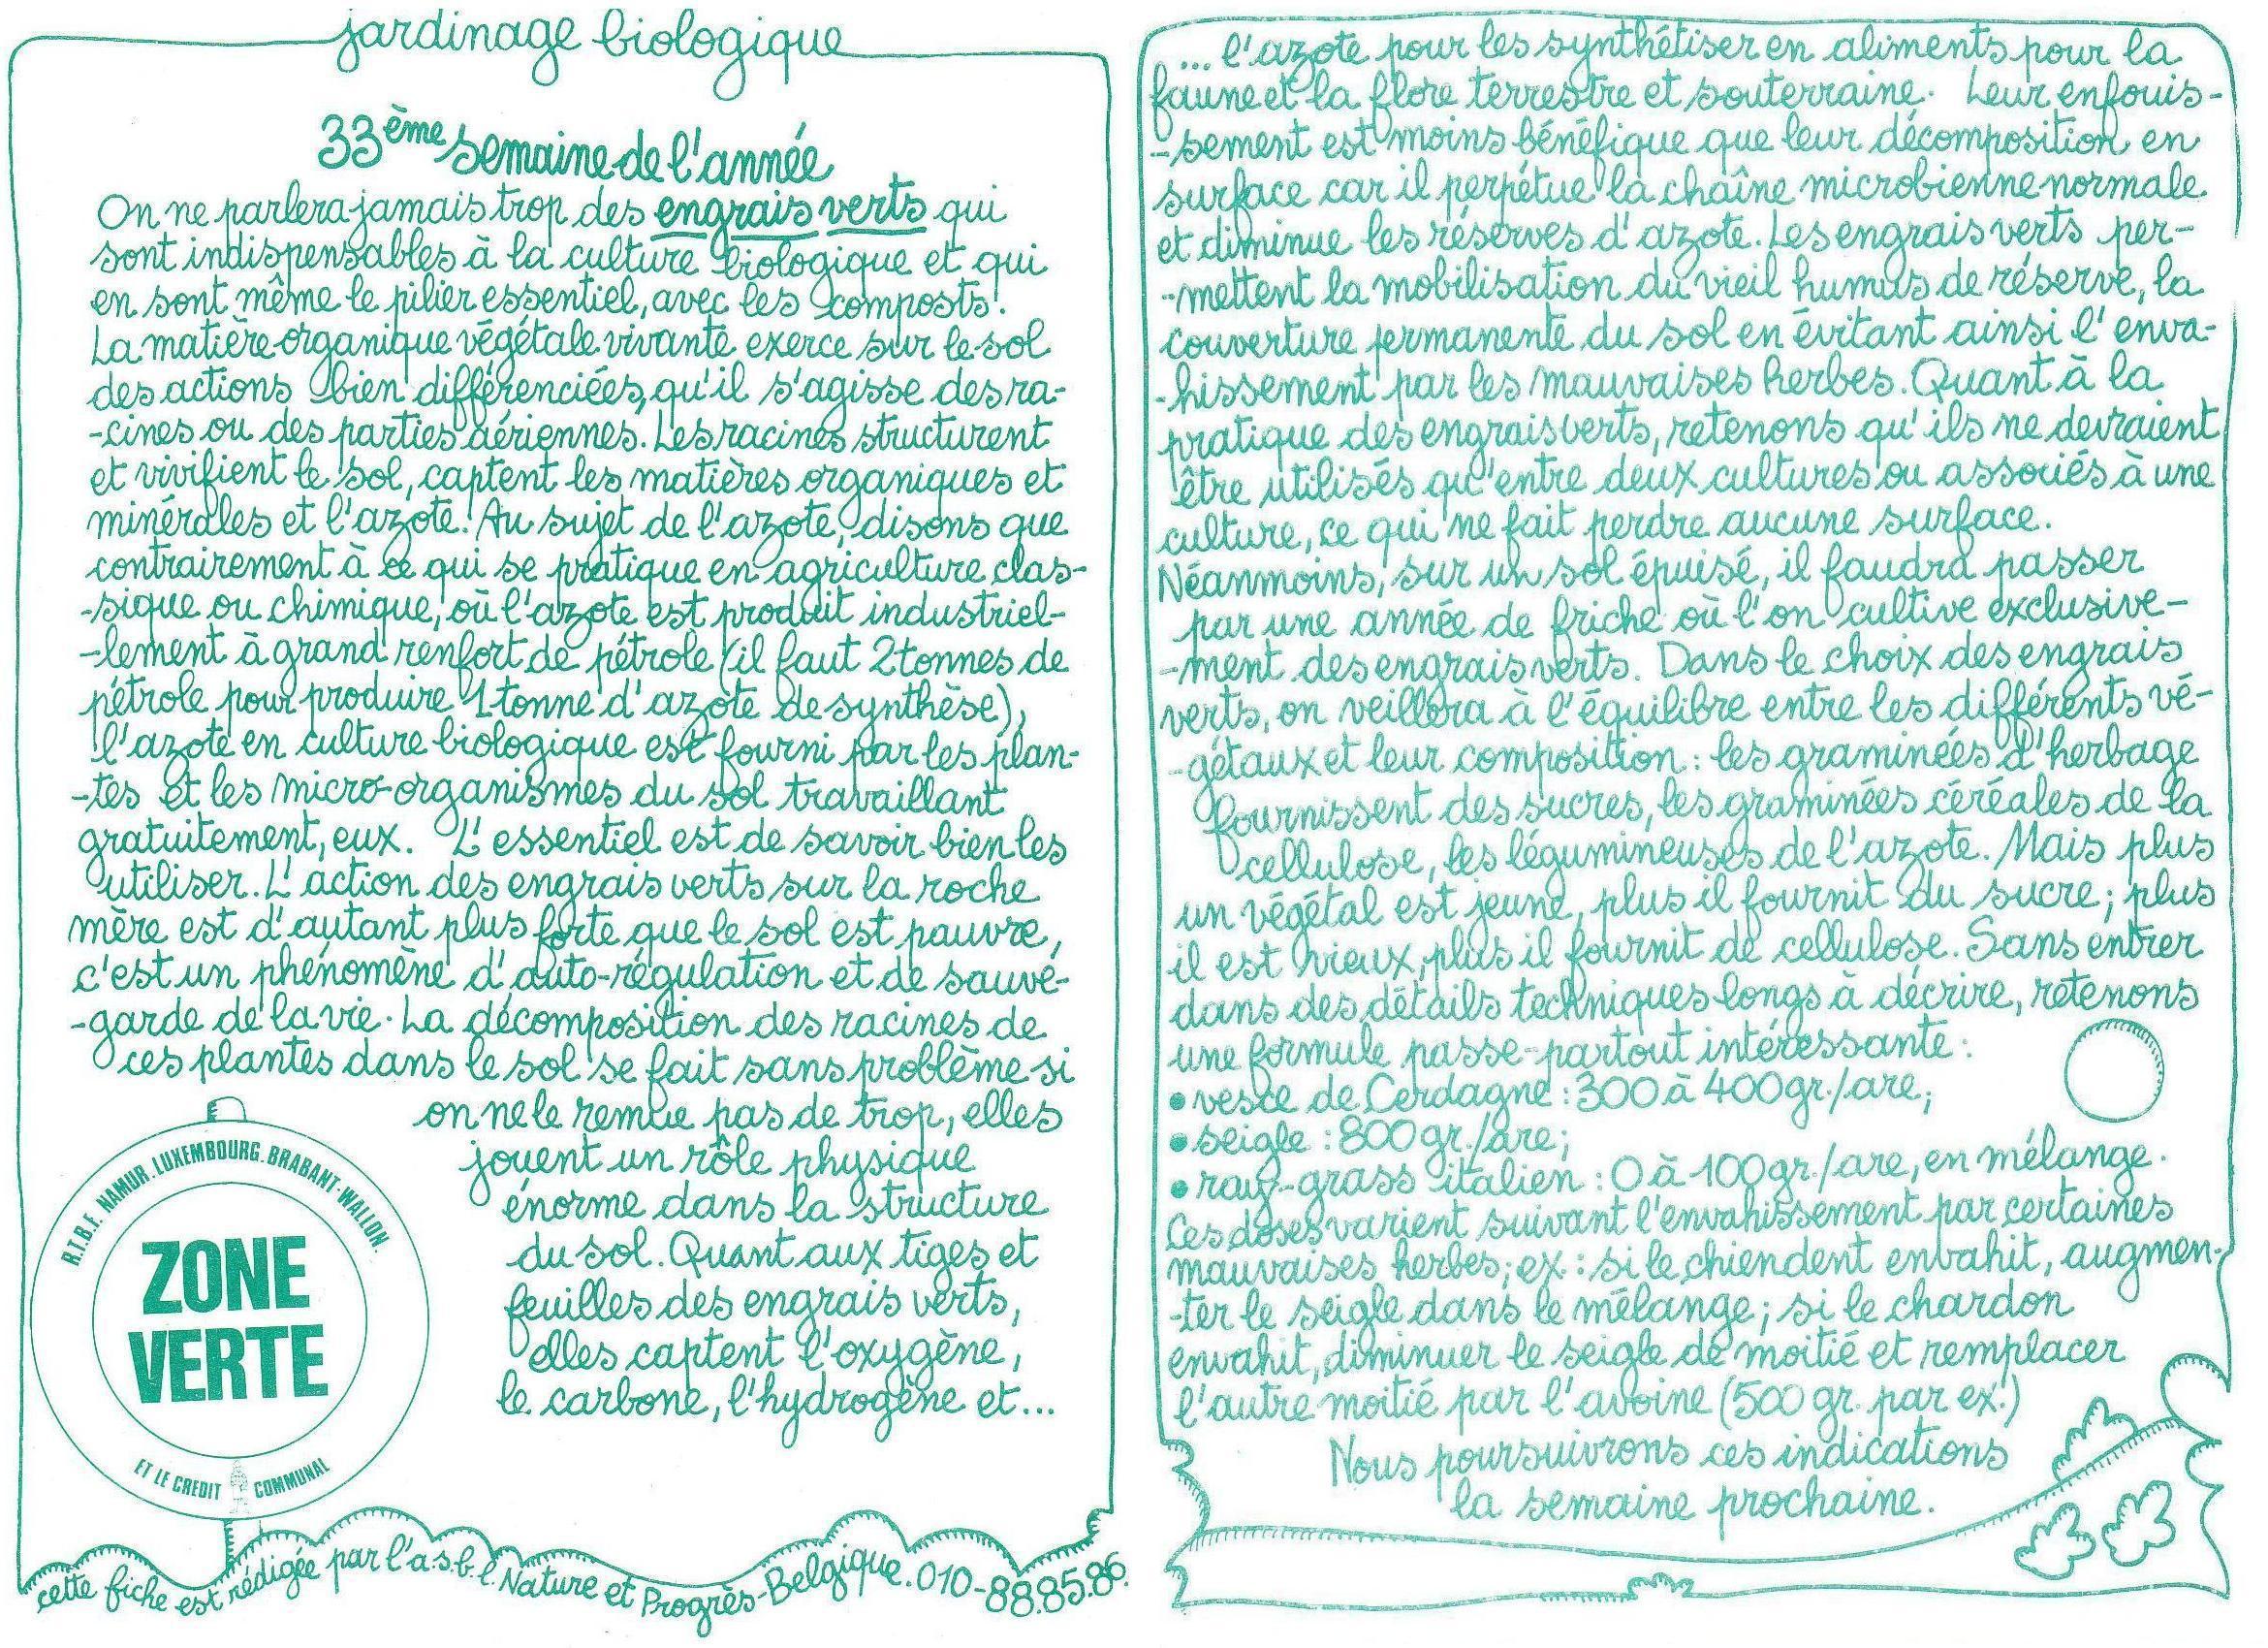 jardinage biologique
33ème semaine de l'année
On ne parlera jamais trop des engrais verts qui
sont indispensables à la culture biologique et qui
en sont même le pilier essentiel, avec les composts.
La matière organique végétale vivante exerce sur le sol
des actions bien différenciées, qu'il s'agisse des ra-
-cines ou des parties aériennes. Les racines structurent
et vivifient le sol, captent les matières organiques et
minérales et l'azote. Au sujet de l'azote, disons que
contrairement à ce qui se pratique en agriculture clas-
-sique ou chimique, où l'azote est produit industriel-
-lement à grand renfort de pétrole (il faut 2 tonnes de
pétrole pour produire 1 tonne d'azote de synthèse),
l'azote en culture biologique est fourni par les plan-
-tes et les micro-organismes du sol travaillant
gratuitement, eux. L'essentiel est de savoir bien les
utiliser. L'action des engrais verts sur la roche
mère est d'autant plus forte que le sol est pauvre,
c'est un phénomène d'auto-régulation et de sauve-
-garde de la vie. La décomposition des racines de
ces plantes dans le sol se fait sans problème si
on ne le remue pas de trop, elles
jouent un rôle physique
énorme dans la structure
du sol. Quant aux tiges et
feuilles des engrais verts,
elles captent l'oxygène,
le carbone, l'hydrogène et...
R.T.B.F. NAMUR. LUXEMBOURG. BRABANT-WALLON.
ZONE
VERTE
ET LE CREDIT COMMUNAL
cette fiche est rédigée par l'a.s.b.l. Nature et Progrès-Belgique. 010-88.85.86.
... l'azote pour les synthétiser en aliments pour la
faune et la flore terrestre et souterraine. Leur enfouis-
-sement est moins bénéfique que leur décomposition en
surface car il perpétue la chaîne microbienne normale
et diminue les réserves d'azote. Les engrais verts per-
-mettent la mobilisation du vieil humus de réserve, la
couverture permanente du sol en évitant ainsi l'enva-
-hissement par les mauvaises herbes. Quant à la
pratique des engrais verts, retenons qu'ils ne devraient
être utilisés qu'entre deux cultures ou associés à une
culture, ce qui ne fait perdre aucune surface.
Néanmoins, sur un sol épuisé, il faudra passer
par une année de friche où l'on cultive exclusive-
-ment des engrais verts. Dans le choix des engrais
verts, on veillera à l'équilibre entre les différents vé-
-gétaux et leur composition : les graminées d'herbage
fournissent des sucres, les graminées céréales de la
cellulose, les légumineuses de l'azote. Mais plus
un végétal est jeune, plus il fournit du sucre ; plus
il est vieux, plus il fournit de cellulose. Sans entrer
dans des détails techniques longs à décrire, retenons
une formule passe-partout intéressante :
• vesce de Cerdagne : 300 à 400 gr./are ;
• seigle : 800 gr./are ;
• ray-grass italien : 0 à 100 gr./are, en mélange.
Ces doses varient suivant l'envahissement par certaines
mauvaises herbes ; ex : si le chiendent envahit, augmen-
-ter le seigle dans le mélange ; si le chardon
envahit, diminuer le seigle de moitié et remplacer
l'autre moitié par l'avoine (500 gr. par ex.)
Nous poursuivrons ces indications
la semaine prochaine.